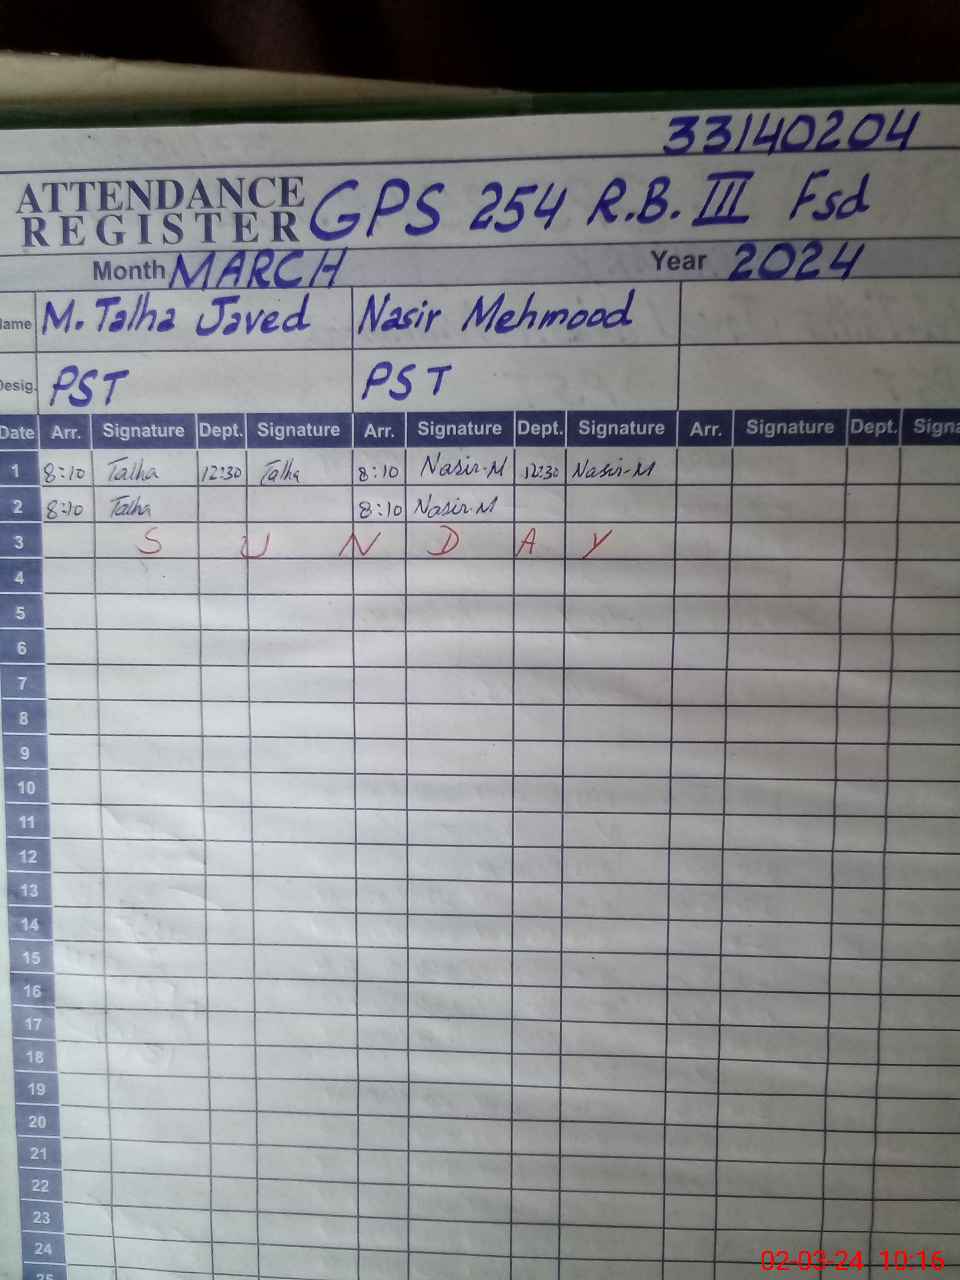 33140204
ATTENDANCE REGISTER GPS 254 R.B. III Fsd
Month MARCH Year 2024
Name M. Talha Javed Nasir Mehmood
Desig. PST PST
Date Arr. Signature Dept. Signature Arr. Signature Dept. Signature Arr. Signature Dept. Signa
1 8:10 Talha 12:30 Talha 8:10 Nasir-M 12:30 Nasir-M
2 8:10 Talha 8:10 Nasir.M
3 S U N D A Y
4
5
6
7
8
9
10
11
12
13
14
15
16
17
18
19
20
21
22
23
24
25
02-03-24 10:16